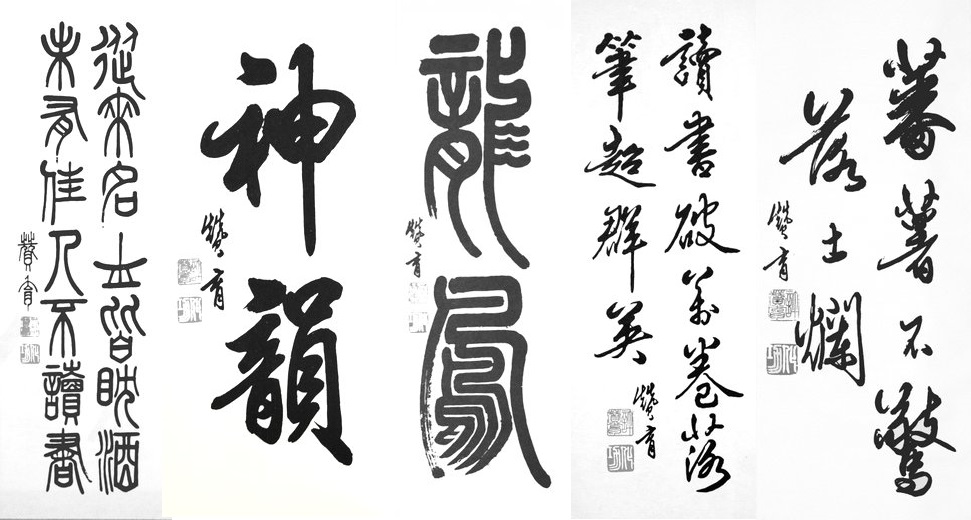 蕃薯不驚
落土爛
贊育
讀書破萬卷落
筆超群英
贊育
龍鳳
贊育
神韻
贊育
從來名士皆耽酒
未有佳人不讀書
贊育